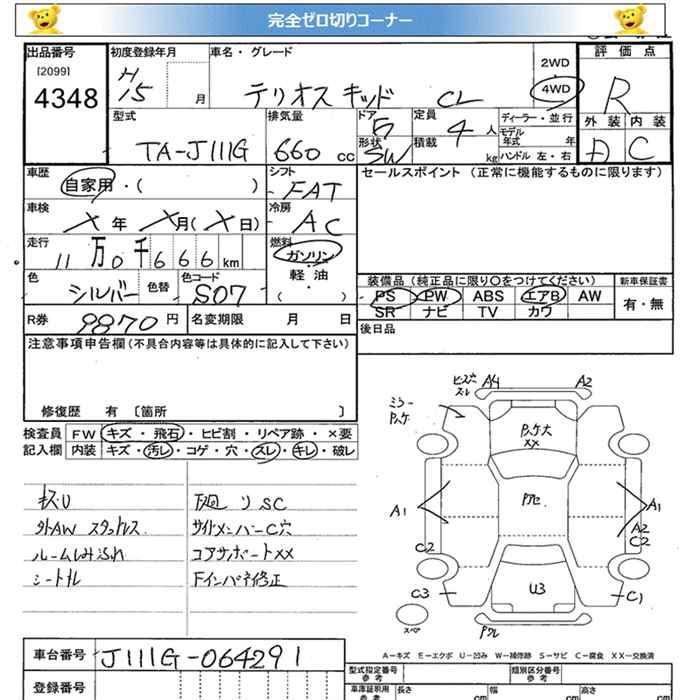 完全ゼロ切りコーナー
出品番号
[2099]
4348
初度登録年月
H15 月
車名・グレード
テリオス キッド CL
2WD
4WD
評価点
R
外装 内装
C
型式
TA-J111G
排気量
660 cc
ドア
5
形状
SW
定員
4 人
積載
kg
ディーラー・並行
モデル年式 年
ハンドル 左・右
車歴
自家用・( )
シフト
FAT
セールスポイント (正常に機能するものに限ります)
車検
X 年 X 月 (X 日)
冷房
AC
走行
11万0千666km
燃料
ガソリン
軽油
( ・ )
色
シルバー
色替
色コード
S07
装備品 (純正品に限り○をつけてください)
PS PW ABS エアB AW
SR ナビ TV カワ
新車保証書
有・無
R券
9870 円
名変期限 月 日
後日品
注意事項申告欄 (不具合内容等は具体的に記入して下さい)
修復歴 有 〔箇所 〕
検査員 FW キズ・飛石・ヒビ割・リペア跡・×要
記入欄 内装 キズ・汚レ・コゲ・穴・スレ・キレ・破レ
キズU
外AW スタットレス
ルームしみ汚れ
下廻りSC
サイドメンバーC穴
コアサポートXX
Fインパネ修正
ヒズミ
スレ
A4
A2
ミラー
P.ッケ
P.ッケ大
XX
A1
A1
A2
C2
C2
C3
C1
U3
スペア
A-キズ E-エクボ U-凹み W-補修跡 S-サビ C-腐食 XX-交換済
車台番号
J111G-064291
登録番号
型式指定番号
参考
類別区分番号
参考
車庫証明用
参考
長さ cm
幅 cm
高さ cm